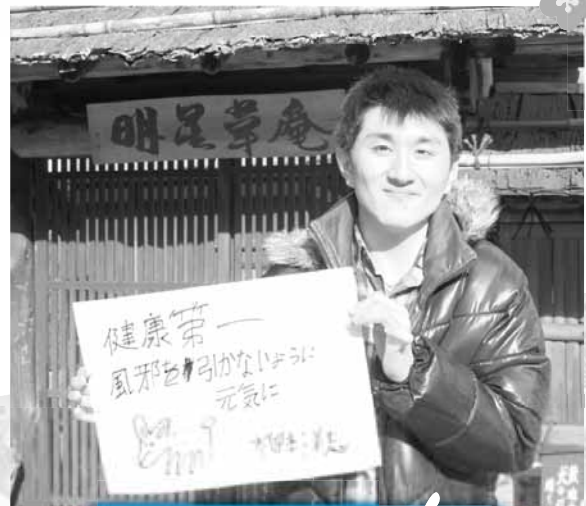 明星草庵
健康第一
風邪を引かないように
元気に